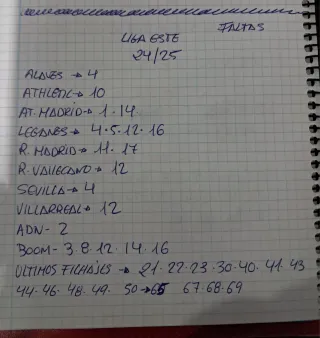 FALTAS
LIGA ESTE
24/25
ALAVES → 4
ATHLETIC → 10
AT. MADRID → 1 · 14
LEGANES → 4 · 5 · 12 · 16
R. MADRID → 11 · 17
R. VALLECANO → 12
SEVILLA → 4
VILLARREAL → 12
ADN - 2
BOOM - 3 · 8 · 12 · 14 · 16
ULTIMOS FICHAJES → 21 · 22 · 23 · 30 · 40 · 41 · 43
44 · 46 · 48 · 49 · 50 → 65 67 · 68 · 69